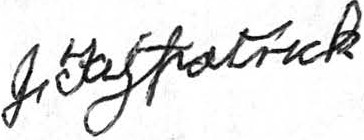 J. Fitzpatrick